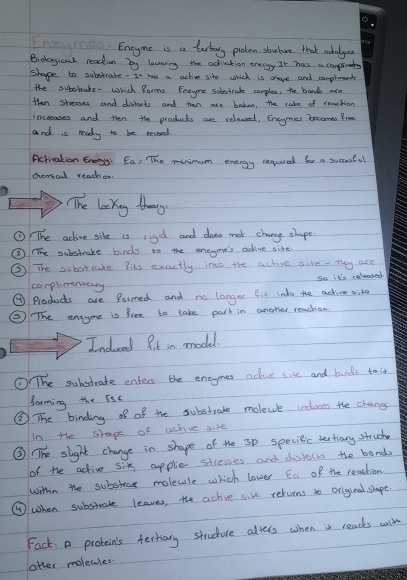 Enzymes: Enzyme is a tertary protein structure that catalyses
Biological reaction by lowering the activation energy It has a complimentary
shape to substrate - It has a active site which is unique and compliments
the substrate - which forms Enzyme substrate complex, the bonds are
then Stresses and distorts and then are broken, the rate of reaction
increases and then the products are released, Enzymes becomes free
and is ready to be reused.
Activation Energy: Ea: The minimum energy required for a successful
chemical reaction.
The lock key theory:
① The active site is rigid and does not change shape.
② The substrate binds to the enzyme's active site.
③ The substrate fits exactly into the active site - they are
complimentary
so it's released
④ Products are formed and no longer fit into the active site
⑤ The enzyme is free to take part in another reaction
Induced fit in model.
① The substrate enters the enzymes active site and binds to it
forming the ESC
② The binding of of the substrate molecule induces the change
in the shape of active site
③ The slight change in shape of the 3D specific tertiary structe
of the active site, applies stresses and distorts the bonds
within the substrate molecule which lower Ea of the reaction.
④ When substrate leaves, the active site returns to original shape.
Fact: A protein's tertiary structure alters when it reacts with
other molecules.